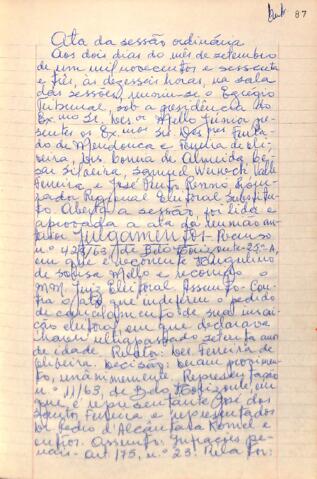 87
Ata da sessão ordinária
Aos dois dias do mês de setembro
de um mil novecentos e sessenta
e três, às dezesseis horas, na sala
das sessões, reuniu-se o Egrégio
Tribunal, sob a presidência do
Ex.mo Sr. Des.or Mello Júnior pre-
sentes os Ex.mos Srs. Des.res Furta-
do de Mendonça e Ferreira de Oli-
veira, Drs. de Almeida
Silveira, Samuel Valle
Ferreira e José Renno
Regional Eleitoral Substitu-
to. Aberta a sessão, foi lida e
aprovada a ata da reunião an-
terior. Julgamentos- Recurso
n.º /63, de Belo Horizonte-25ª-A,
em que é recorrente
de Souza Mello e recorrido o
MM. Juiz Eleitoral. Assunto- Con-
tra o ato que indeferiu o pedido
de cancelamento de sua inscri-
ção eleitoral, em que declarava
haver ultrapassado setenta anos
de idade. Relator: Des. Ferreira de
Oliveira. Decisão: Deram provimen-
to, unânimemente. Representação
n.º 11/63, de Belo Horizonte, em
que é representante José dos
Santos Ferreira e representados
Dr. Pedro d'Alcântara
e outros. Assunto: Infrações pe-
nais- Art. 175, n.º 23. Relator: